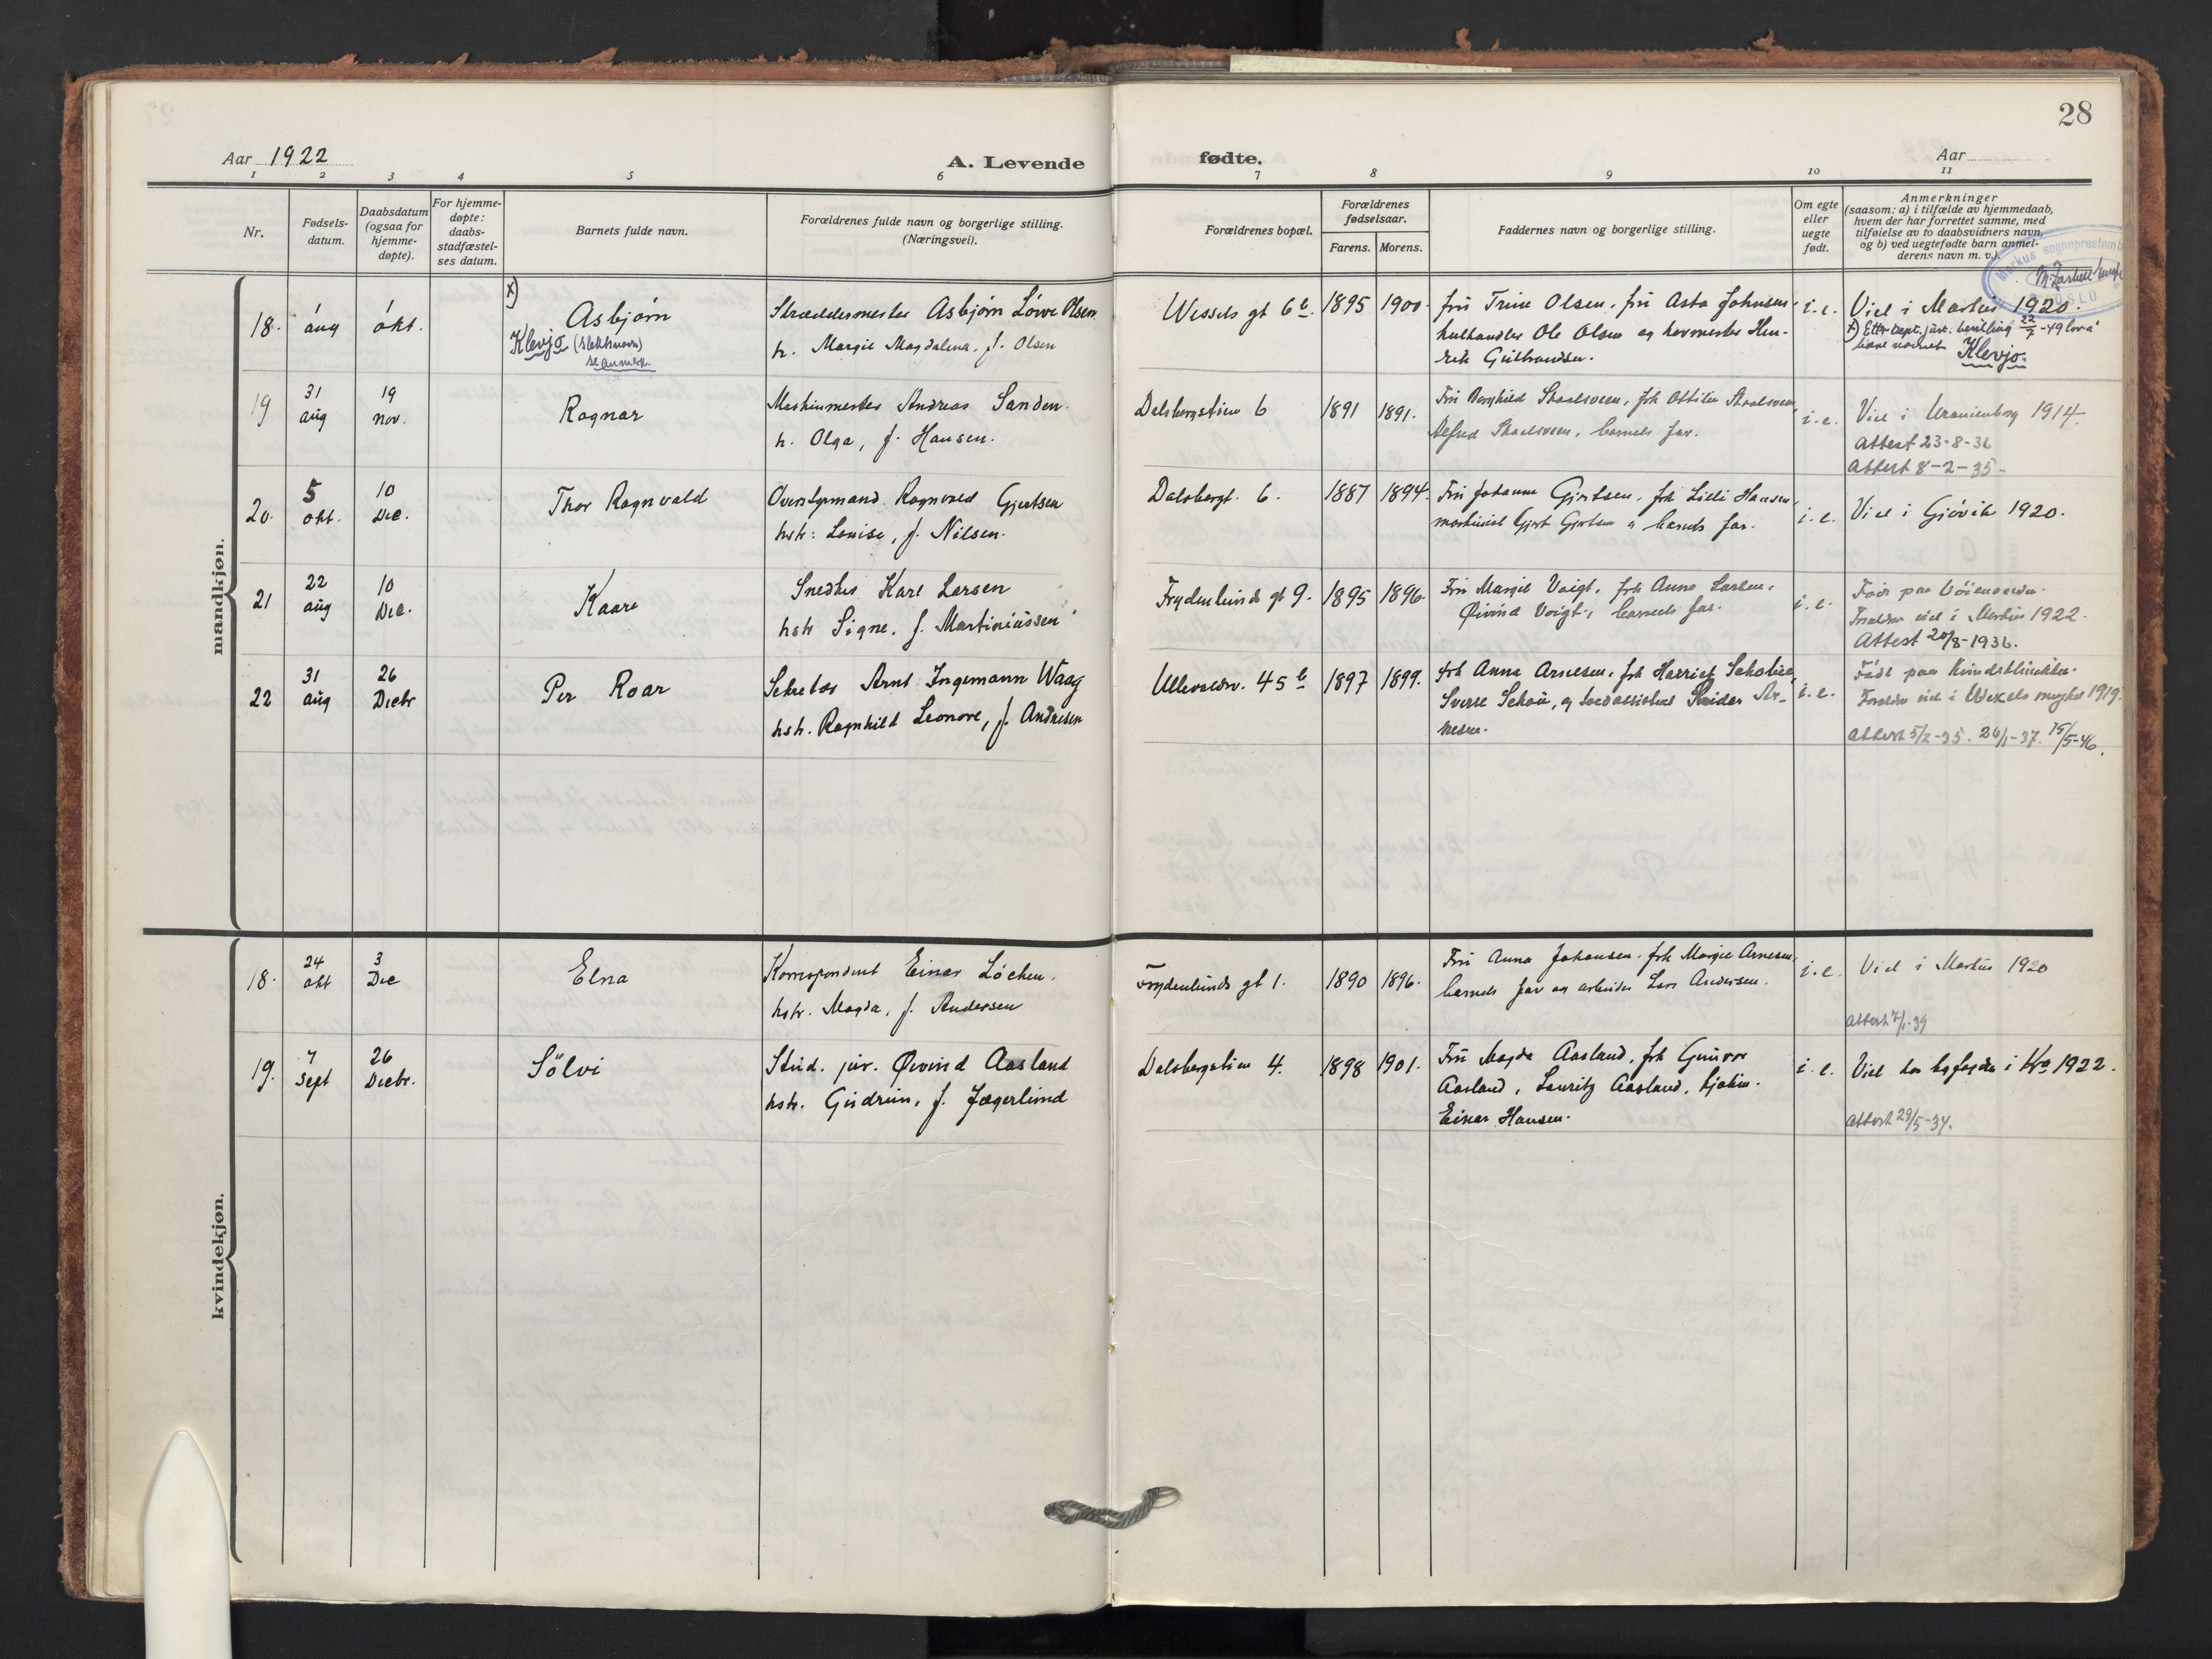 28
Aar 1922
A. Levende
fødte.
Aar
1 2 3 4 5 6 7 8 9 10 11
Nr.
Fødsels-
datum.
Daabsdatum
(ogsaa for
hjemme-
døpte).
For hjemme-
døpte:
daabs-
stadfæstel-
ses datum.
Barnets fulde navn.
Forældrenes fulde navn og borgerlige stilling.
(Næringsvei).
Forældrenes bopæl.
Forældrenes
fødselsaar.
Farens. Morens.
Faddernes navn og borgerlige stilling.
Om egte
eller
uegte
født.
Anmerkninger
(saasom: a) i tilfælde av hjemmedaab,
hvem der har forrettet samme, med
tilføielse av to daabsvidners navn,
og b) ved uegtefødte barn anmel-
derens navn m. v.).
Markus sogneprestemb
OSLO
mandkjøn.
18.
1
aug
1
okt.
x)
Asbjørn
Klevjo (slektsnavn)
se anmerk.
Skræddermester Asbjørn Løwe Olsen
h. Margit Magdalena, f. Olsen
Wessels gt 6b.
1895
1900.
fru Trine Olsen, fru Asta Johnsen
kulhandler Ole Olsen og hovmester Hen-
rik Gulbrandsen.
i. e.
Viet i Markus 1920.
x) Ettr dept. just. bevilling 22/7 -49 lov å
bære navnet Klevjo.
19
31
aug
19
nov.
Ragnar
Maskinmester Andreas Sanden
h. Olga, f. Hansen.
Dalsbergstien 6
1891
1891.
Fru Borghild Skaalsveen, frk Ottilie Skaalsveen,
Alfred Skaalsveen, barnets far.
i. e.
Viet i Uranienborg 1914.
Attest 23-8-36
Attest 8-2-35-
20.
5
okt.
10
Dec.
Thor Ragnvald
Overstyrmand Ragnvald Gjertsen
hstr: Louise, f. Nilsen.
Dalsbergt. 6.
1887
1894.
Fru Johanne Gjertsen, frk Lilli Hansen,
maskinist Gjert Gjertsen og barnets far.
i. e.
Viet i Gjövik 1920.
21
22
aug
10
Dec.
Kaare
Snedker Karl Larsen
hstr Signe, f. Martiniussen
Frydenlunds gt 9.
1895
1896.
Fru Margit Voigt, frk Anna Larsen,
Øivind Voigt, barnets far.
i. e.
Født paa
Forældre viet i Markus 1922.
Attest 20/8-1936.
22
31
aug
26
Decbr
Per Roar
Sekretær Arnt Ingemann Waag
hstr. Ragnhild Leonore, f. Andresen
Ullevaalsv. 45b
1897
1899.
frk Anna Arnesen, frk Harriet
Sverre Schou, og Reidar Ar-
nesen.
i. e.
Født paa Kvindeklinikken.
Forældre viet i Wexels menighet 1919.
Attest 5/2-35. 26/1-37. 15/5-46.
kvindekjøn.
18.
24
okt
3
Dec
Elna
Korrespondent Einar Löchen.
hstr. Magda, f. Andersen
Frydenlunds gt 1.
1890
1896.
Fru Anna Johansen, frk Margit Arnesen
barnets far og arbeider Lars Andersen.
i. e.
Viet i Markus 1920
Attest 7/1-39
19.
7
Sept
26
Decbr.
Sölvi
Stud. jur. Øivind Aasland
hstr. Gudrun, f. Jægerlund
Dalsbergstien 4.
1898
1901.
Fru Magda Aasland, frk Gunvor
Aasland, Lauritz Aasland,
Einar Hansen.
i. e.
Viet hos byfogden i Kra 1922.
Attest 29/5-34.